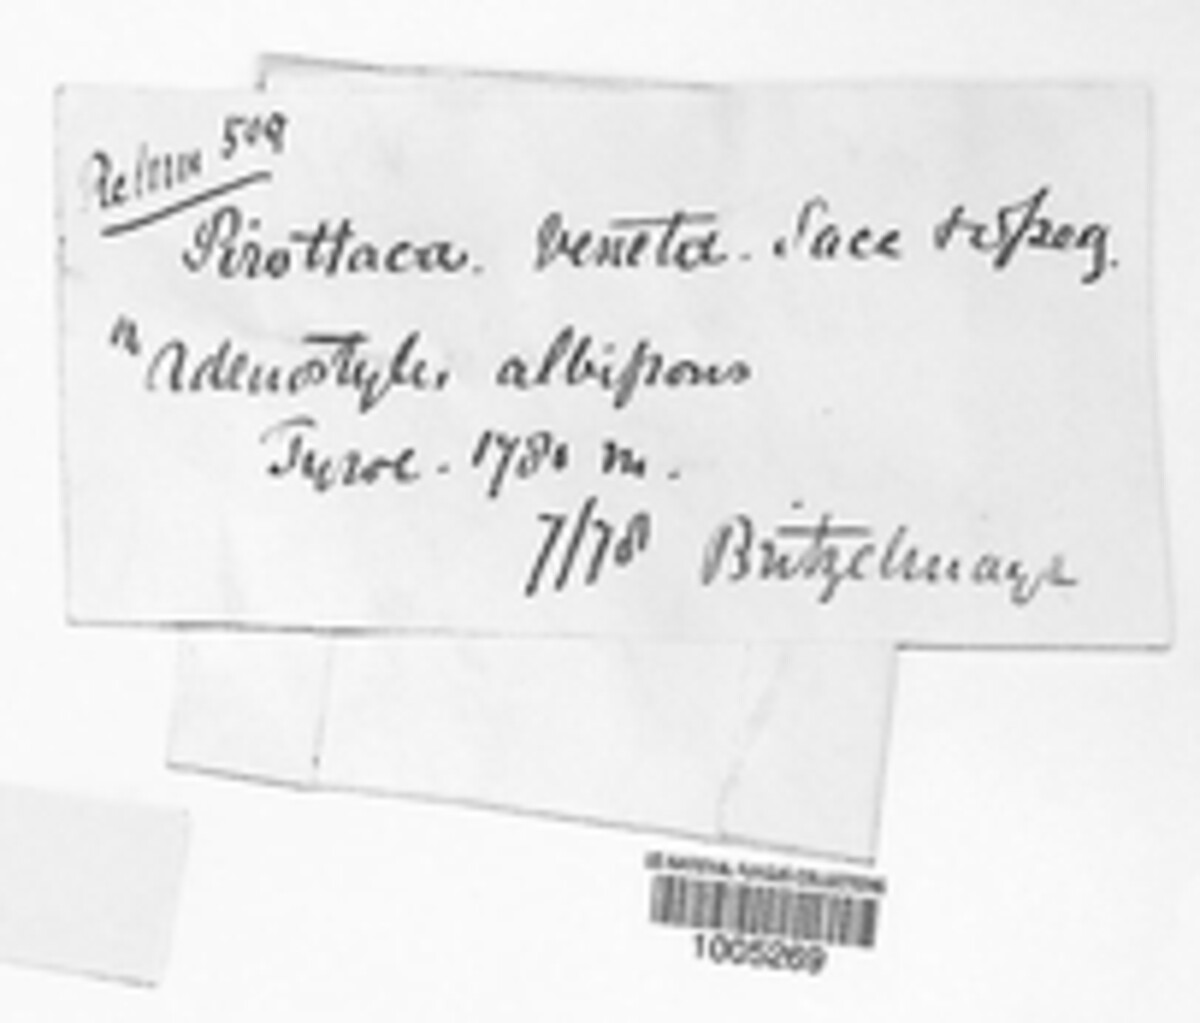 Rehm 509
Pirottaea. veneta. Sacc et Speg.
n Adenostyles albifrons
Tyrol. 1781 m.
7/78 Britzelmayr
US NATIONAL FUNGUS COLLECTIONS
1005269